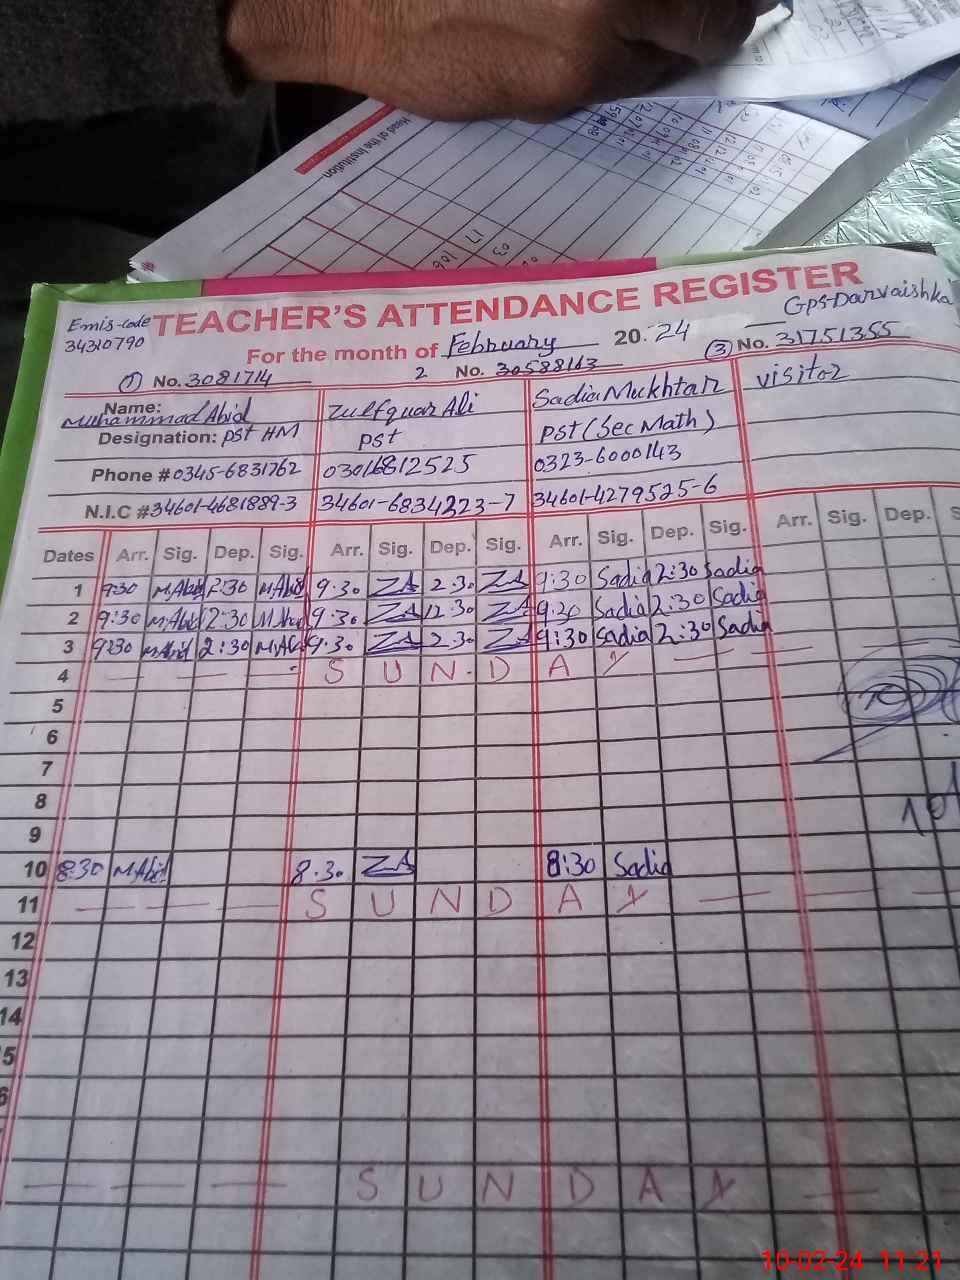 Head of the Institution
TEACHER'S ATTENDANCE REGISTER
Emis-code
34310790
GPS-Darvaishka
For the month of February 2024
① No. 3081714 2 No. 30588163 ③ No. 31751355
Name: Muhammad Abid Zulfquar Ali Sadia Mukhtar visitor
Designation: PST HM PST PST (Sec Math)
Phone # 0345-6831762 03016812525 0323-6000143
N.I.C # 34601-4681889-3 34601-6834223-7 34601-4279525-6
Dates Arr. Sig. Dep. Sig. Arr. Sig. Dep. Sig. Arr. Sig. Dep. Sig. Arr. Sig. Dep. S
1 9:30 M.Abid 2:30 M.Abid 9.30 ZA 2.30 ZA 9:30 Sadia 2:30 Sadia
2 9:30 M.Abid 2:30 9.30 ZA 2.30 ZA 9:30 Sadia 2:30 Sadia
3 9:30 M.Abid 2:30 9.30 ZA 2.30 ZA 9:30 Sadia 2:30 Sadia
4 — — — — S U N D A Y — —
5
6
7
8
9
10 8:30 M.Abid 8.30 ZA 8:30 Sadia
11 — — — — S U N D A Y — — —
12
13
14
5
6
— — — S U N D A Y —
10-02-24 11:21